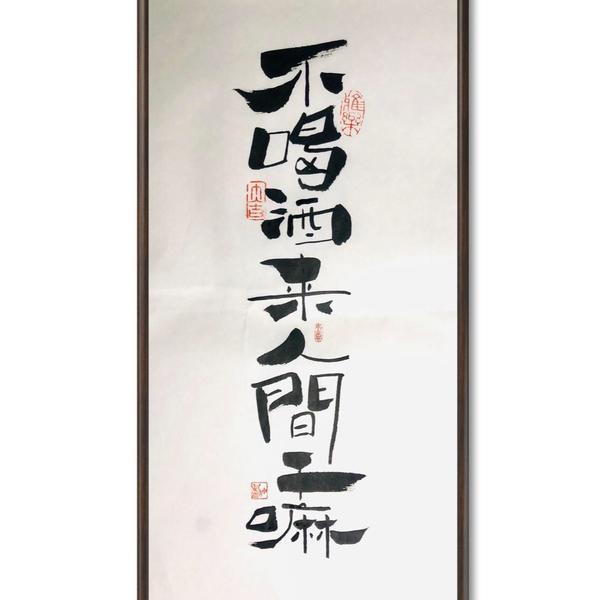 不喝酒来人間干嘛